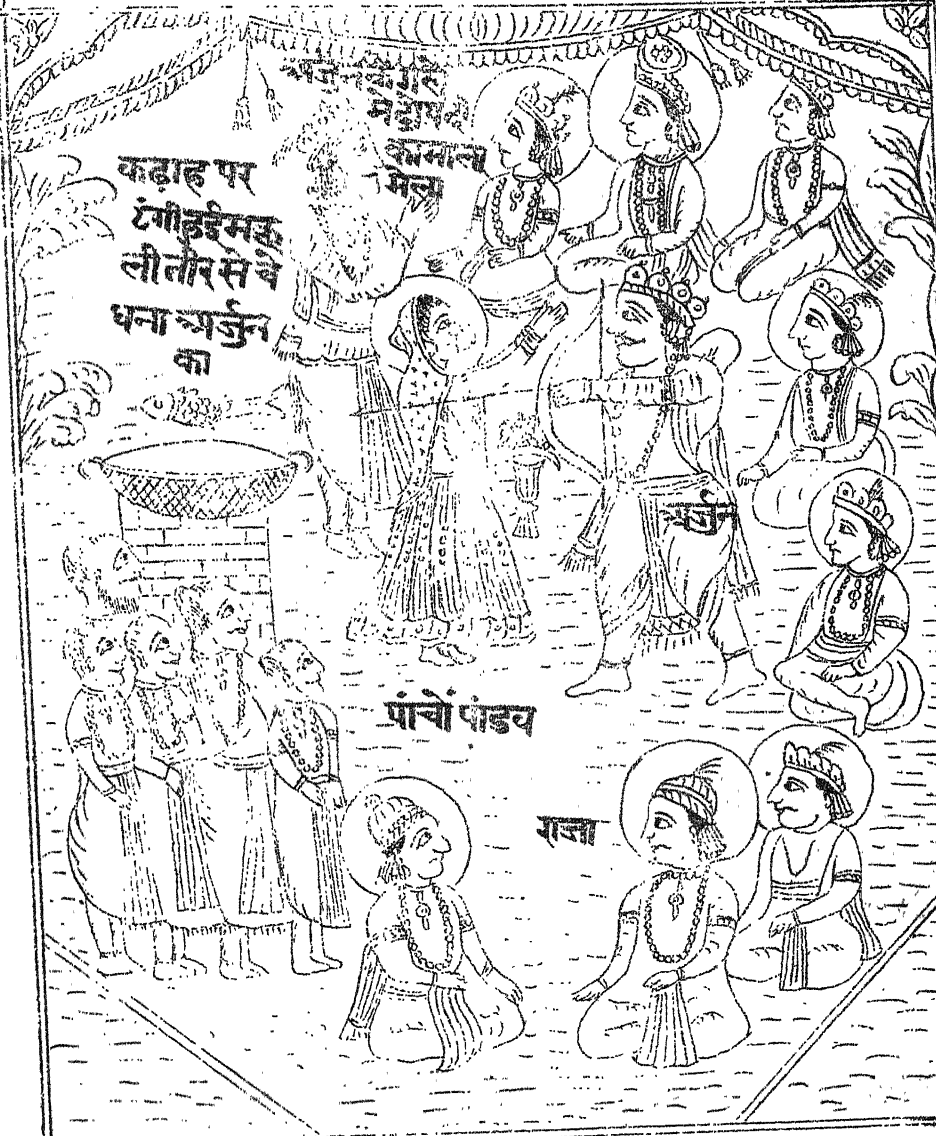 अर्जुन के गले
में द्रोपदी
का माला
मेलना
कढ़ाह पर
टंगी हुई मछ
ली तीर से वे
धना अर्जुन
का
अर्जुन
पांचों पांडव
राजा